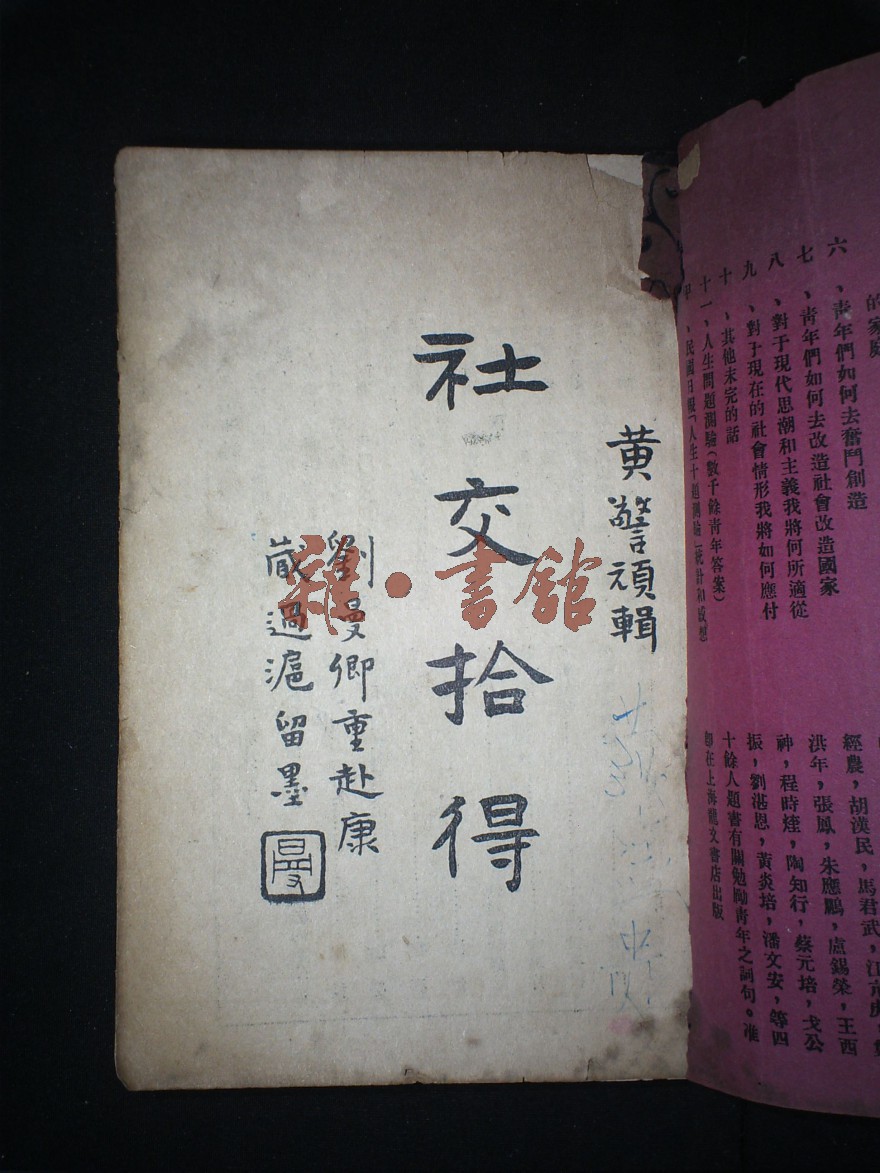 的家庭
六、青年們如何去奮鬥創造
七、青年們如何去改造社會改造國家
八、對于現代思潮和主義我將何所適從
九、對于現在的社會情形我將如何應付
十、其他未完的話
十一、人生問題測驗（數千餘青年答案）
甲、民國日報「人生十題測驗」統計和感想
經農，胡漢民，馬君武，江亢虎，
洪年，張鳳，朱應鵬，盧錫榮，王西
神，程時煃，陶知行，蔡元培，戈公
振，劉湛恩，黃炎培，潘文安，等四
十餘人題書有關勉勵青年之詞句。准
卽在上海龍文書店出版
黃警頑輯
社交拾得
劉曼卿重赴康
藏過滬留墨
曼
雜·書館